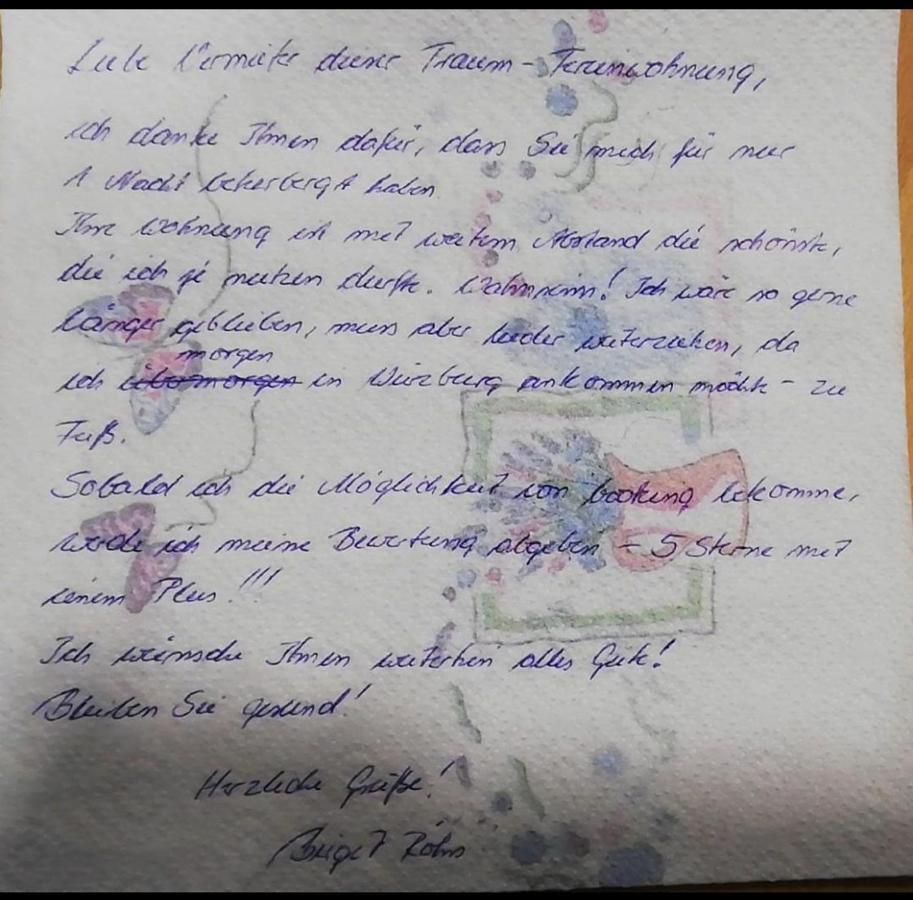 Liebe Vermieter dieser Traum-Ferienwohnung,
ich danke Ihnen dafür, dass Sie mich für nur
1 Nacht beherbergt haben.
Ihre Wohnung ist mit weitem Abstand die schönste,
die ich je nutzen durfte. Wahnsinn! Ich wäre so gerne
länger geblieben, muss aber leider weiterziehen, da
morgen
ich übermorgen in Würzburg ankommen möchte - zu
Fuß.
Sobald ich die Möglichkeit von booking bekomme,
werde ich meine Bewertung abgeben - 5 Sterne mit
einem Plus!!!
Ich wünsche Ihnen weiterhin alles Gute!
Bleiben Sie gesund!
Herzliche Grüße!
Birgit